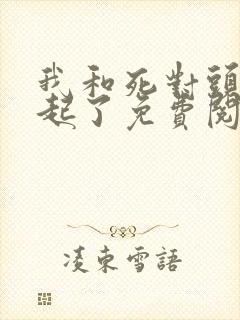 我和死對頭
起了免費閱
凌東雪語